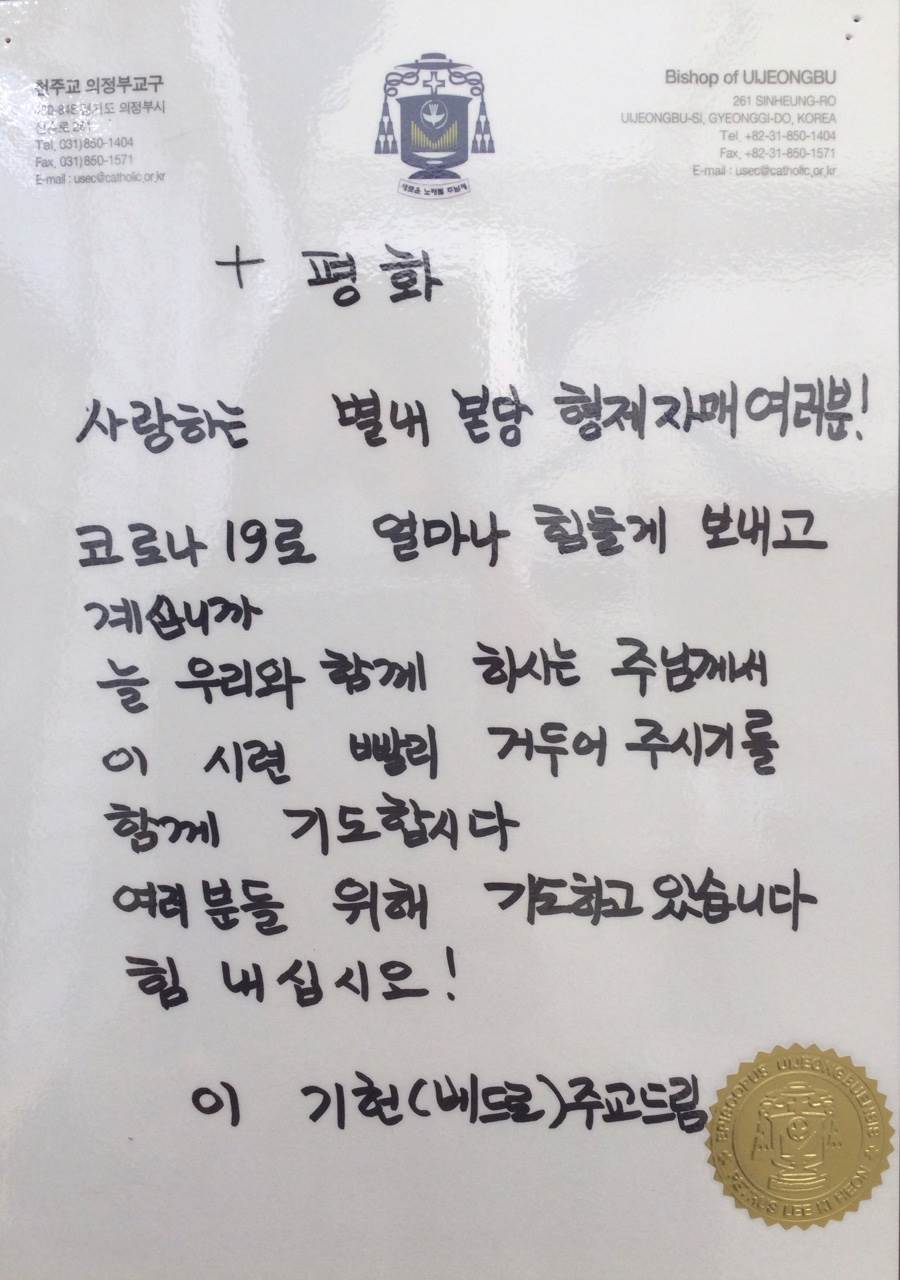 천주교 의정부교구
경기도 의정부시
Tel. 031)850-1404
Fax. 031)850-1571
E-mail : usec@catholic.or.kr
Bishop of UIJEONGBU
261 SINHEUNG-RO
UIJEONGBU-SI, GYEONGGI-DO, KOREA
Tel. +82-31-850-1404
Fax. +82-31-850-1571
E-mail : usec@catholic.or.kr
새로운 노래를 주님께
+ 평화
사랑하는 별내 본당 형제자매여러분!
코로나19로 얼마나 힘들게 보내고
계십니까
늘 우리와 함께 하시는 주님께서
이 시련 빨리 거두어 주시기를
함께 기도합시다
여러분들 위해 기도하고 있습니다
힘 내십시오!
이 기헌(베드로)주교드림
EPISCOPUS UIJEONGBUENSIS
PETRUS LEE KI HEON